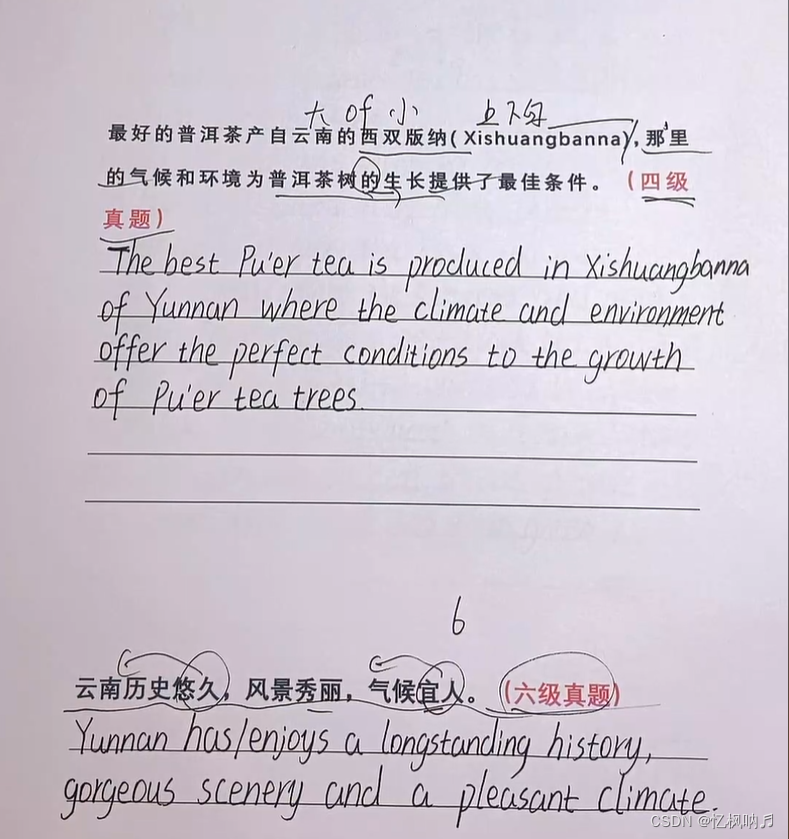 大 of 小
最好的普洱茶产自云南的西双版纳(Xishuangbanna),那里
的气候和环境为普洱茶树的生长提供了最佳条件。(四级
真题)
The best Pu'er tea is produced in Xishuangbanna
of Yunnan where the climate and environment
offer the perfect conditions to the growth
of Pu'er tea trees.
6
云南历史悠久，风景秀丽，气候宜人。(六级真题)
Yunnan has/enjoys a longstanding history,
gorgeous scenery and a pleasant climate.
CSDN @忆枫呐♬